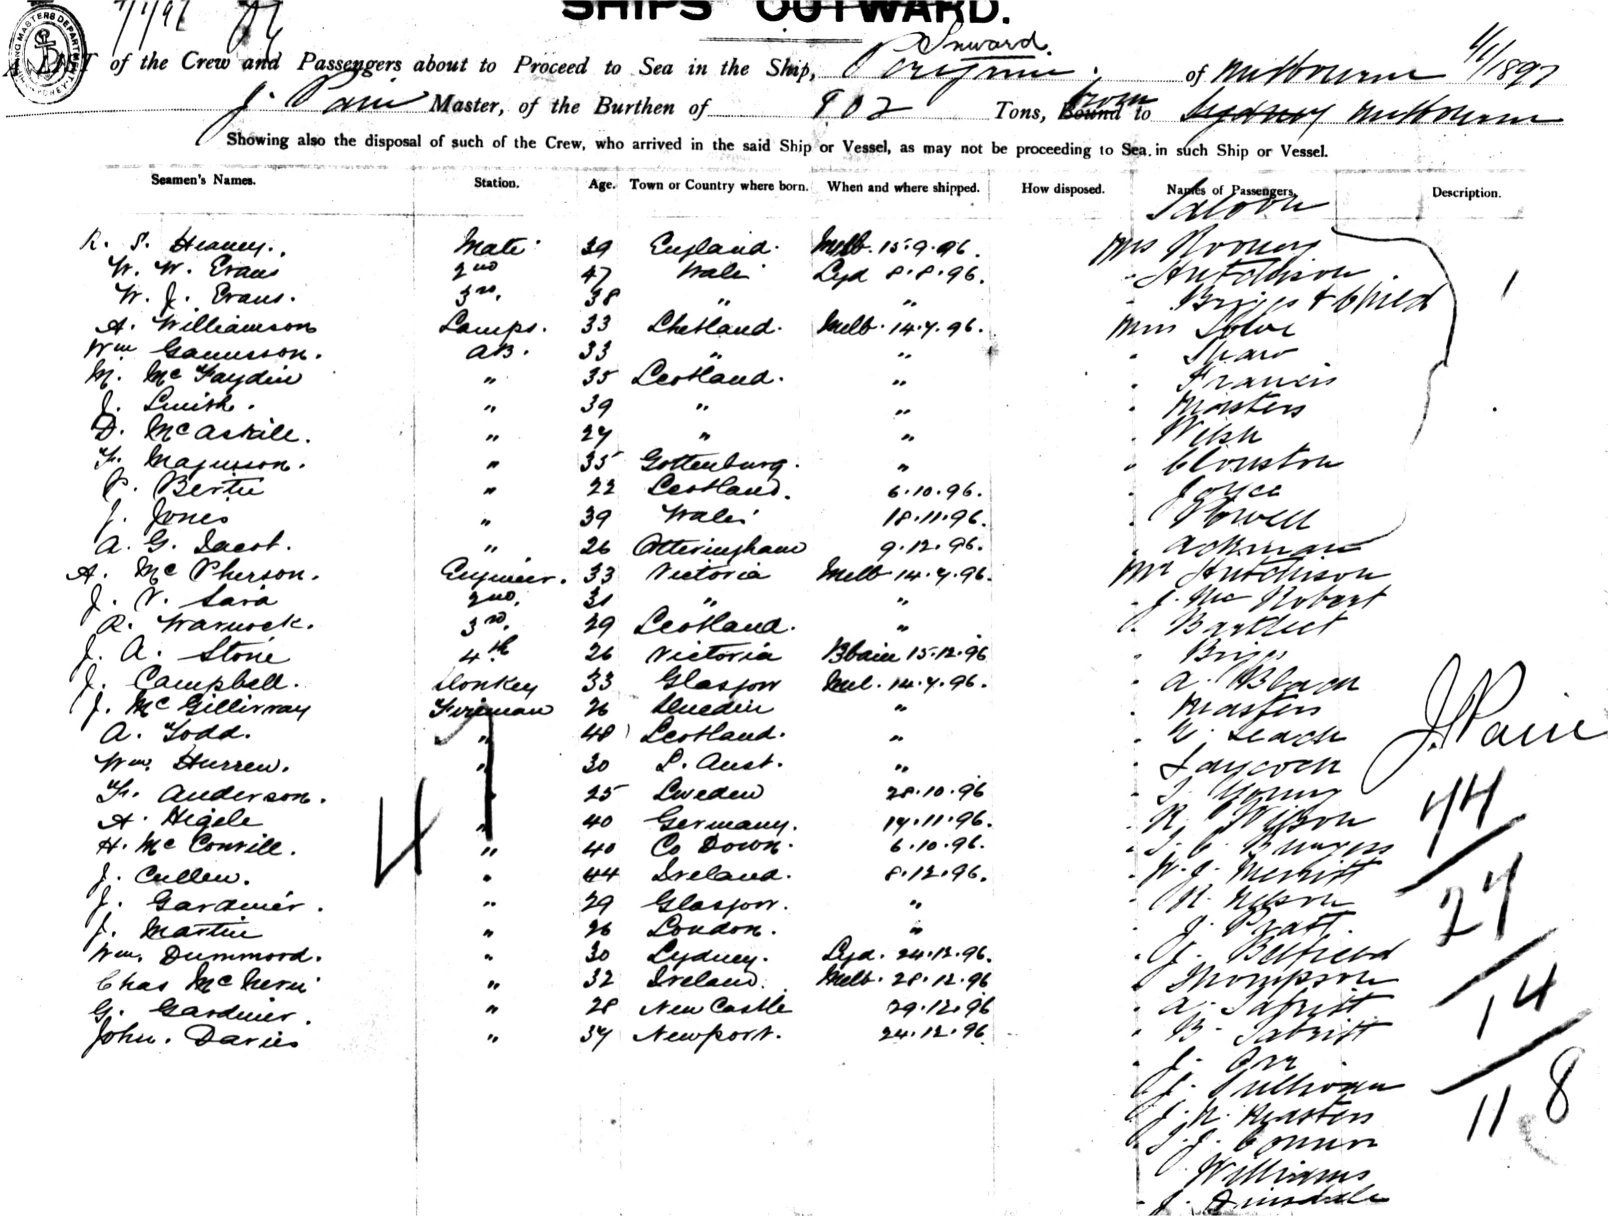 SHIPS OUTWARD.
Inward.
of the Crew and Passengers about to Proceed to Sea in the Ship, Peregrine of Melbourne 4/1/1897
J. Pain Master, of the Burthen of 902 Tons, Bound to from Sydney Melbourne
Showing also the disposal of such of the Crew, who arrived in the said Ship or Vessel, as may not be proceeding to Sea in such Ship or Vessel.
Seamen's Names. Station. Age. Town or Country where born. When and where shipped. How disposed. Names of Passengers. Description.
Saloon
R. S. Heaney. Mate 39 England. Melb. 15.9.96. Mrs Rooney
W. W. Evans 2nd 47 Wales Syd 8.8.96. " Hutchison
W. J. Evans. 3rd. 38 " " " Briggs & Child
A. Williamson Lamps. 33 Shetland. Melb. 14.7.96. Miss Lowe
Wm AB. 33 " " " Shaw
M. McFaydin " 35 Scotland. " " Francis
J. Smith. " 39 " " " Masters
D. McAskill. " 27 " " " Welsh
F. Magnusson. " 35 Gottenburg. " " Clouston
P. Bertie " 22 Scotland. 6.10.96. " Joyce
J. Jones " 39 Wales 18.11.96. " Howell
A. G. Jacob. " 26 Otteringham 9.12.96. " Ackman
A. McPherson. Engineer. 33 Victoria Melb 14.7.96. Mr Hutchison
J. V. Sara 2nd. 31 " " " J. McRobert
R. Warnock. 3rd. 29 Scotland. " " Bartlett
J. A. Stone 4th 26 Victoria Bbane 15.12.96 " Briggs
J. Campbell. Donkey 33 Glasgow Mel. 14.7.96. " A. Black
J. McGillivray Fireman 26 Dunedin " " Masters
A. Todd. " 48 Scotland. " " Leach J. Pain
Wm. Hurren. " 30 S. Aust. " " Laycock
F. Anderson. " 25 Sweden 28.10.96 " Young 44
A. Higele " 40 Germany. 17.11.96. " R. Wilson
H. McConvill. " 40 Co Down. 6.10.96. " Burgess
J. Cullen. " 44 Ireland. 8.12.96. " W. J. Merritt
J. Gardiner. " 29 Glasgow. " " N. Nelson 27
J. Martin " 26 London. " " J. Pratt.
Wm. Dummond. " 30 Sydney. Syd. 24.12.96. " J. Belfield
Chas McNevin " 32 Ireland. Melb. 28.12.96 " Thompson
G. Gardiner. " 28 New Castle 29.12.96 " A. Tabritt 14
John. Davies " 37 Newport. 24.12.96 " B. Tabritt
" J. Orr
" J. Sullivan
" J. N. Masters 11 8
" T. J. Connor
Williams
" J. Dinsdale
4